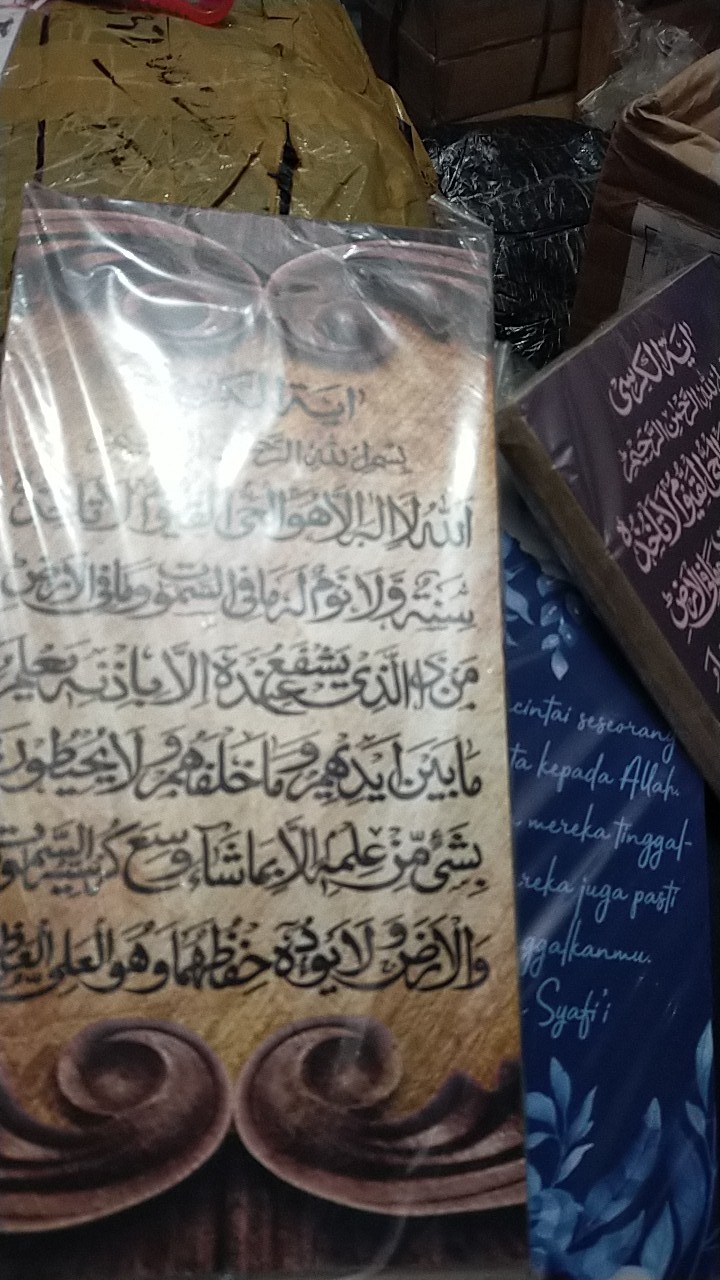 اية الكرسي
بسم الله الرحمن الرحيم
الله لا اله الا هو الحي القيوم لا تاخذه
سنة ولا نوم له ما في السموت وما في الارض
من ذا الذي يشفع عنده الا باذنه يعلم
ما بين ايديهم وما خلفهم ولا يحيطون
بشيء من علمه الا بما شاء وسع كرسيه السموت
والارض ولا يوده حفظهما وهو العلي العظيم
اية الكرسي
الله الرحمن الرحيم
القيوم لا تاخذه
الارض
cintai seseorang
ta kepada Allah.
mereka tinggal-
reka juga pasti
ggalkanmu.
Syafi'i